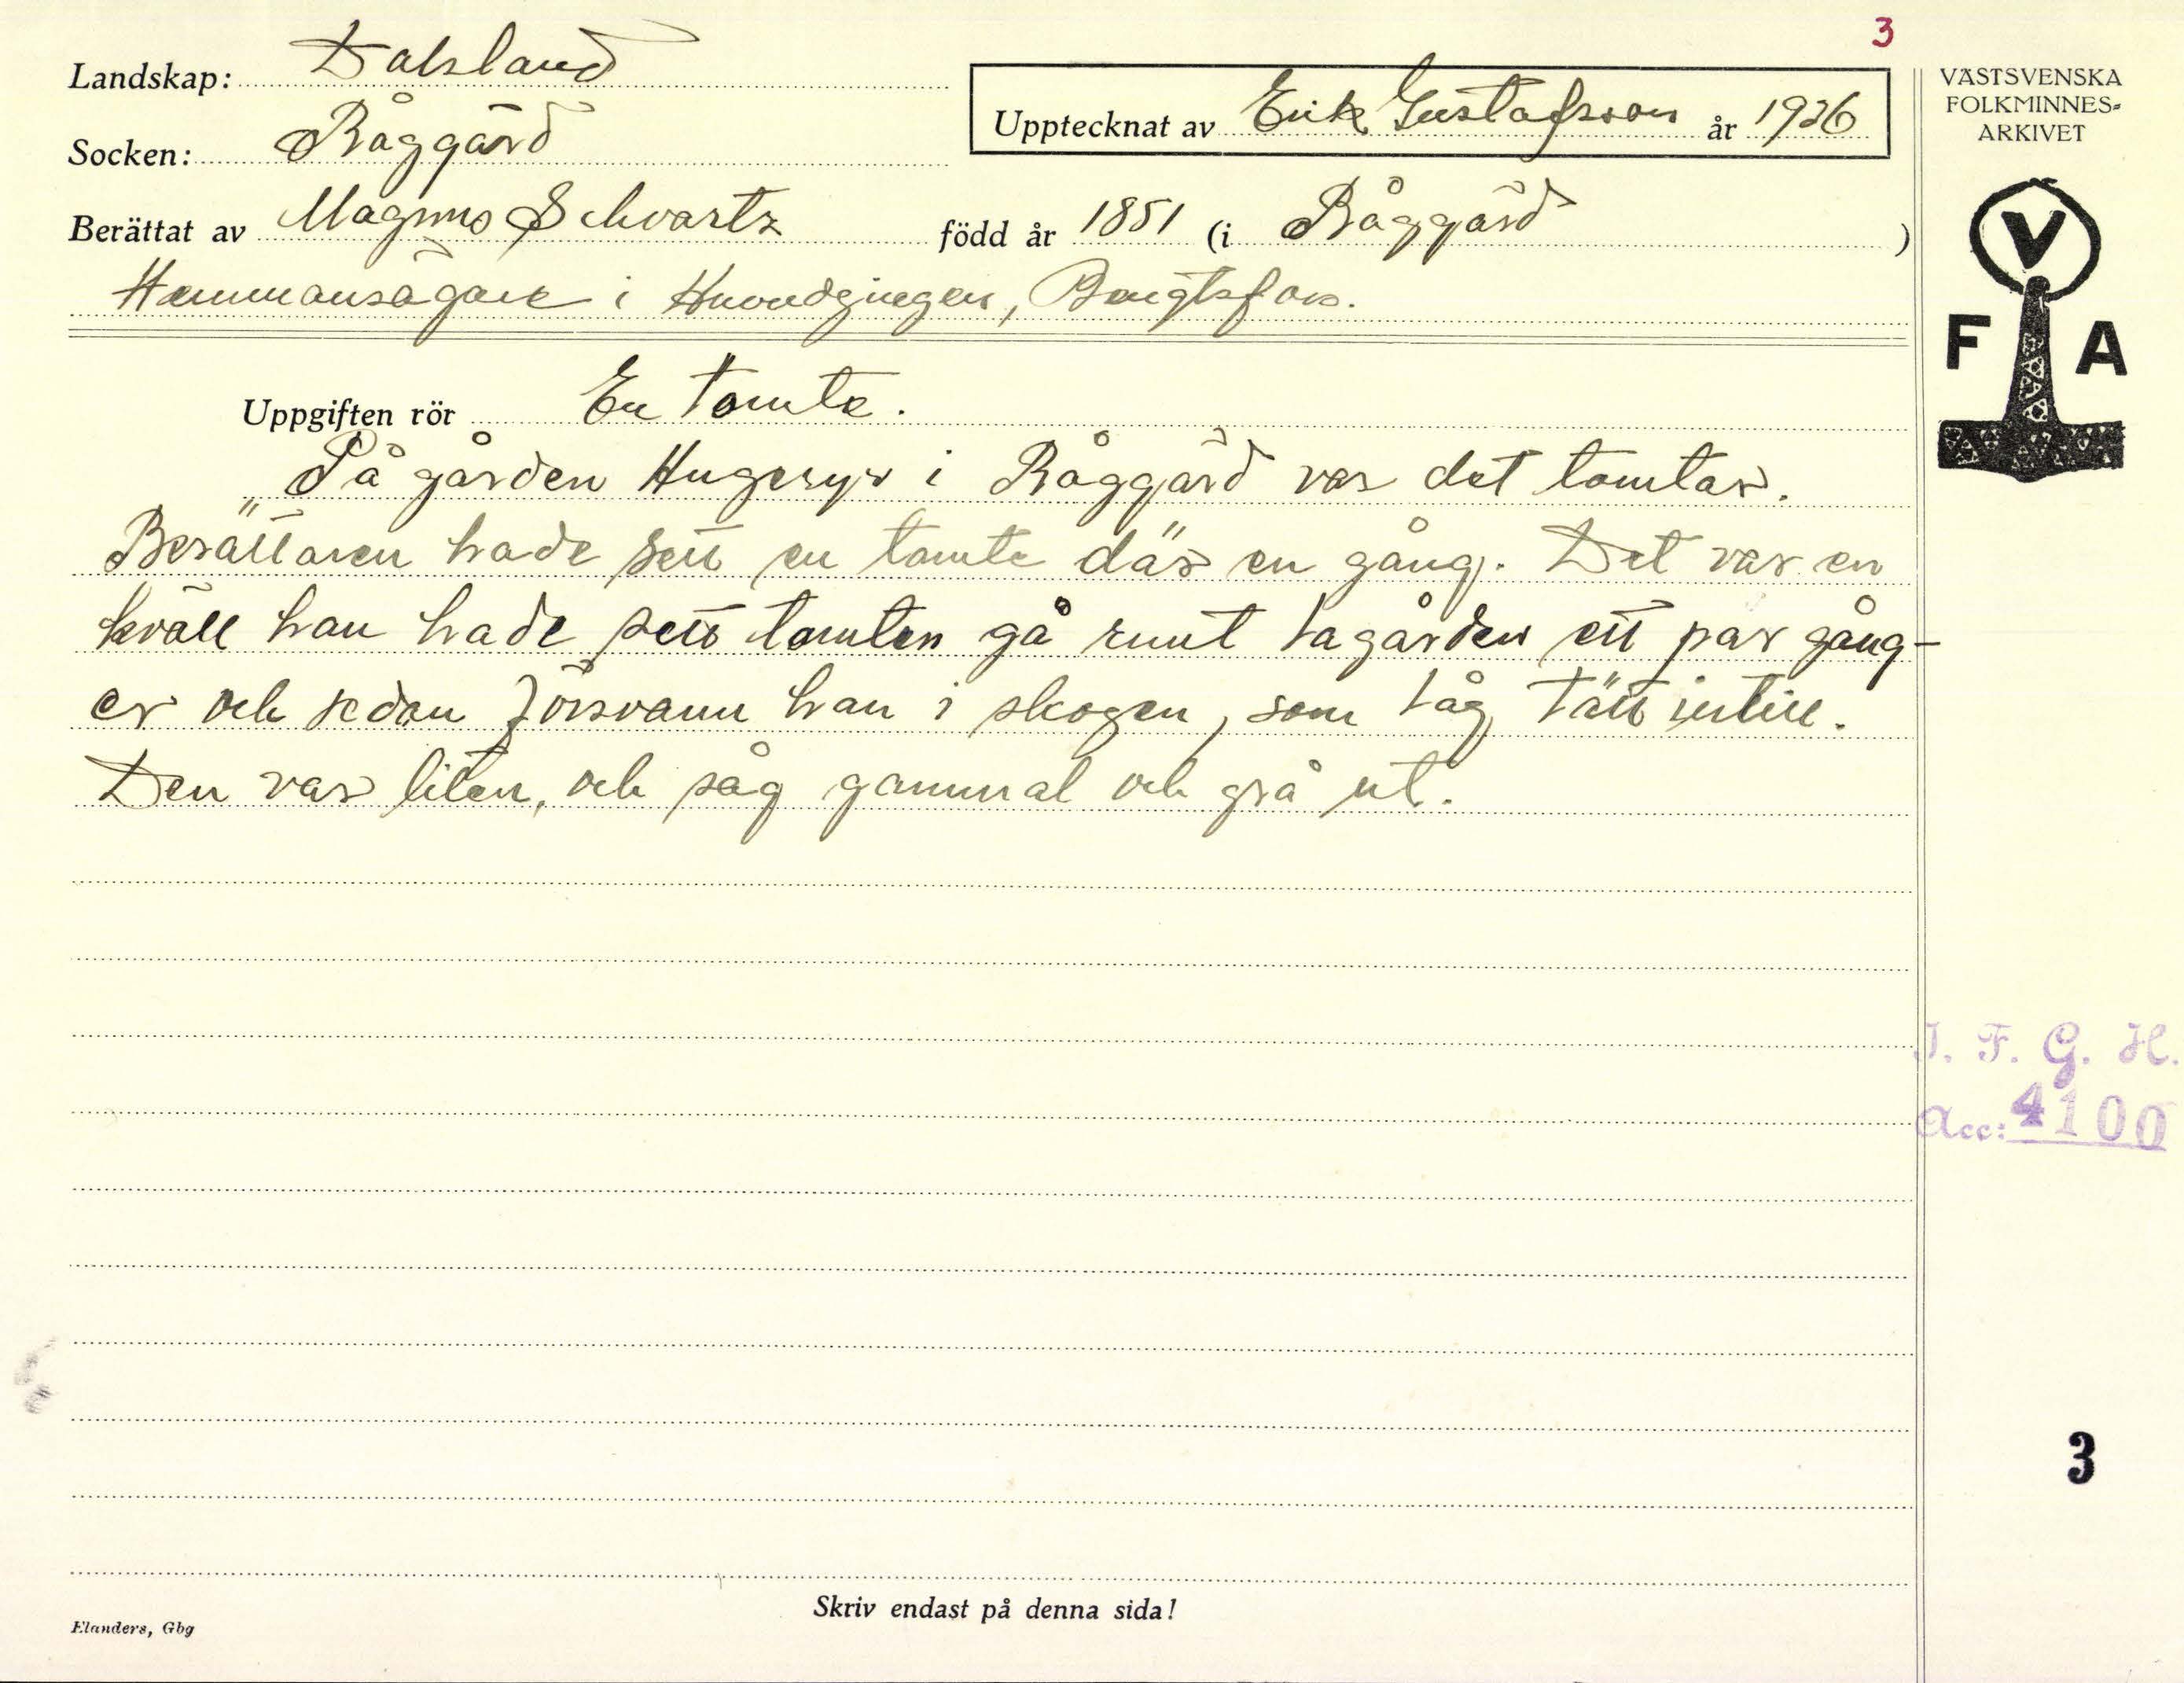 3
Landskap: Dalsland
Socken: Råggärd
Upptecknat av Erik Gustafsson år 1926
VÄSTSVENSKA
FOLKMINNES-
ARKIVET
Berättat av Magnus Schvartz född år 1851 (i Råggärd )
Hemmansägare i Bengtsfors.
V
F A
Uppgiften rör En tomte.
„På gården i Råggärd var det tomtar.
Berättaren hade sett en tomte där en gång. Det var en
kväll han hade sett tomten gå runt lagården ett par gång-
er och sedan försvann han i skogen, som låg tätt intill.
Den var liten, och såg gammal och grå ut.
I. F. G. H.
Acc: 4100
3
Skriv endast på denna sida!
Elanders, Gbg